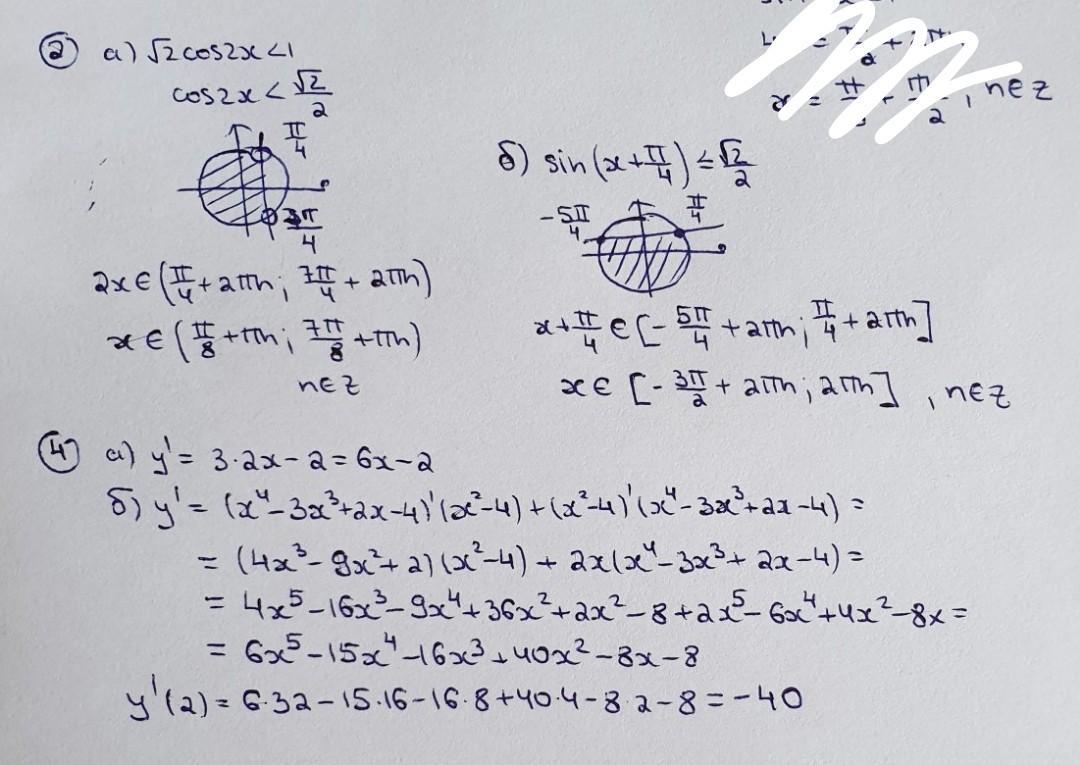 ② а) √2cos2x<1
cos2x < √2/2
π/4
3π/4
2x ∈ (π/4 + 2πn; 7π/4 + 2πn)
x ∈ (π/8 + πn; 7π/8 + πn)
n∈Z
, n∈Z
б) sin(x+π/4) ≤ √2/2
-5π/4 π/4
x+π/4 ∈ [-5π/4 + 2πn; π/4 + 2πn]
x ∈ [-3π/2 + 2πn; 2πn], n∈Z
④ а) y' = 3·2x-2 = 6x-2
б) y' = (x⁴-3x³+2x-4)'(x²-4)+(x²-4)'(x⁴-3x³+2x-4) =
= (4x³-9x²+2)(x²-4) + 2x(x⁴-3x³+2x-4) =
= 4x⁵-16x³-9x⁴+36x²+2x²-8+2x⁵-6x⁴+4x²-8x =
= 6x⁵-15x⁴-16x³+40x²-8x-8
y'(2) = 6·32-15·16-16·8+40·4-8·2-8 = -40